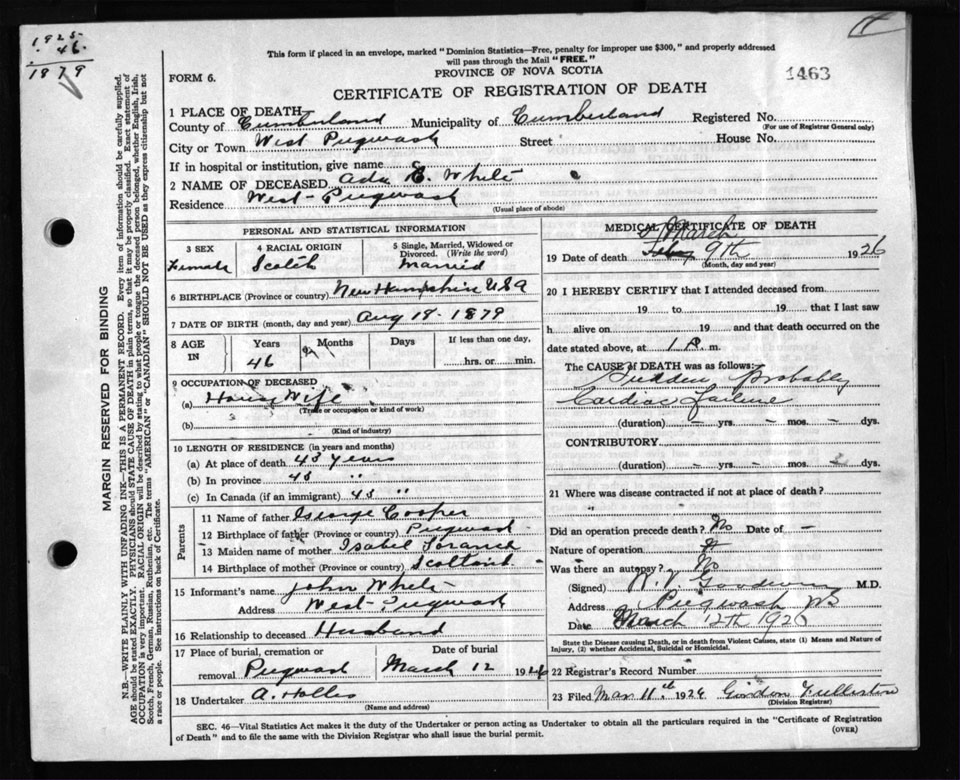 1925
46.
1879
This form if placed in an envelope, marked "Dominion Statistics—Free, penalty for improper use $300," and properly addressed
will pass through the Mail "FREE."
PROVINCE OF NOVA SCOTIA
FORM 6.
1463
CERTIFICATE OF REGISTRATION OF DEATH
MARGIN RESERVED FOR BINDING
N.B.—WRITE PLAINLY WITH UNFADING INK—THIS IS A PERMANENT RECORD. Every item of information should be carefully supplied.
AGE should be stated EXACTLY. PHYSICIANS should STATE CAUSE OF DEATH in plain terms, so that it may be properly classified. Exact statement of
OCCUPATION is very important. RACIAL ORIGIN will be described by stating to what people or tongue the deceased person belonged, whether English, Irish,
Scotch, French, German, Russian, Ruthenian, etc. The terms "AMERICAN" or "CANADIAN" SHOULD NOT BE USED as they express citizenship but not
a race or people. See instructions on back of Certificate.
1 PLACE OF DEATH
County of Cumberland Municipality of Cumberland Registered No.
(For use of Registrar General only)
City or Town West Pugwash Street House No.
If in hospital or institution, give name
2 NAME OF DECEASED Ada E. White
Residence West-Pugwash
(Usual place of abode)
PERSONAL AND STATISTICAL INFORMATION
3 SEX 4 RACIAL ORIGIN 5 Single, Married, Widowed or
Divorced. (Write the word)
Female Scotch Married
6 BIRTHPLACE (Province or country) New Hampshire USA
7 DATE OF BIRTH (month, day and year) Aug 18-1879
8 AGE IN Years Months Days If less than one day,
46 hrs. or min.
9 OCCUPATION OF DECEASED
(a) House Wife
(Trade or occupation or kind of work)
(b)
(Kind of industry)
10 LENGTH OF RESIDENCE (in years and months)
(a) At place of death 43 years
(b) In province 43 "
(c) In Canada (if an immigrant) 43 "
Parents
11 Name of father George Cooper
12 Birthplace of father (Province or country) Pugwash
13 Maiden name of mother Isabel
14 Birthplace of mother (Province or country) Scotland
15 Informant's name John White
Address West-Pugwash
16 Relationship to deceased Husband
17 Place of burial, cremation or Date of burial
removal Pugwash March 12 1926
18 Undertaker A. Hollis
(Name and address)
MEDICAL CERTIFICATE OF DEATH
March
19 Date of death Feby 9th 1926
(Month, day and year)
20 I HEREBY CERTIFY that I attended deceased from
19 to 19 that I last saw
h alive on 19 and that death occurred on
date stated above, at 1 P. m.
The CAUSE of DEATH was as follows:
Sudden Probably
Cardiac Failure
(duration) – yrs. – mos. – dys.
CONTRIBUTORY
(duration) – yrs. – mos. – dys.
21 Where was disease contracted if not at place of death?
Did an operation precede death? No Date of –
Nature of operation
Was there an autopsy? No
(Signed) M.D.
Address Pugwash NS
Date March 12th 1926
State the Disease causing Death, or in death from Violent Causes, state (1) Means and Nature of
Injury, (2) whether Accidental, Suicidal or Homicidal.
22 Registrar's Record Number
23 Filed Mar 11th 1926 Gordon Fullerton
(Division Registrar)
SEC. 46—Vital Statistics Act makes it the duty of the Undertaker or person acting as Undertaker to obtain all the particulars required in the "Certificate of Registration
of Death" and to file the same with the Division Registrar who shall issue the burial permit.
(OVER)